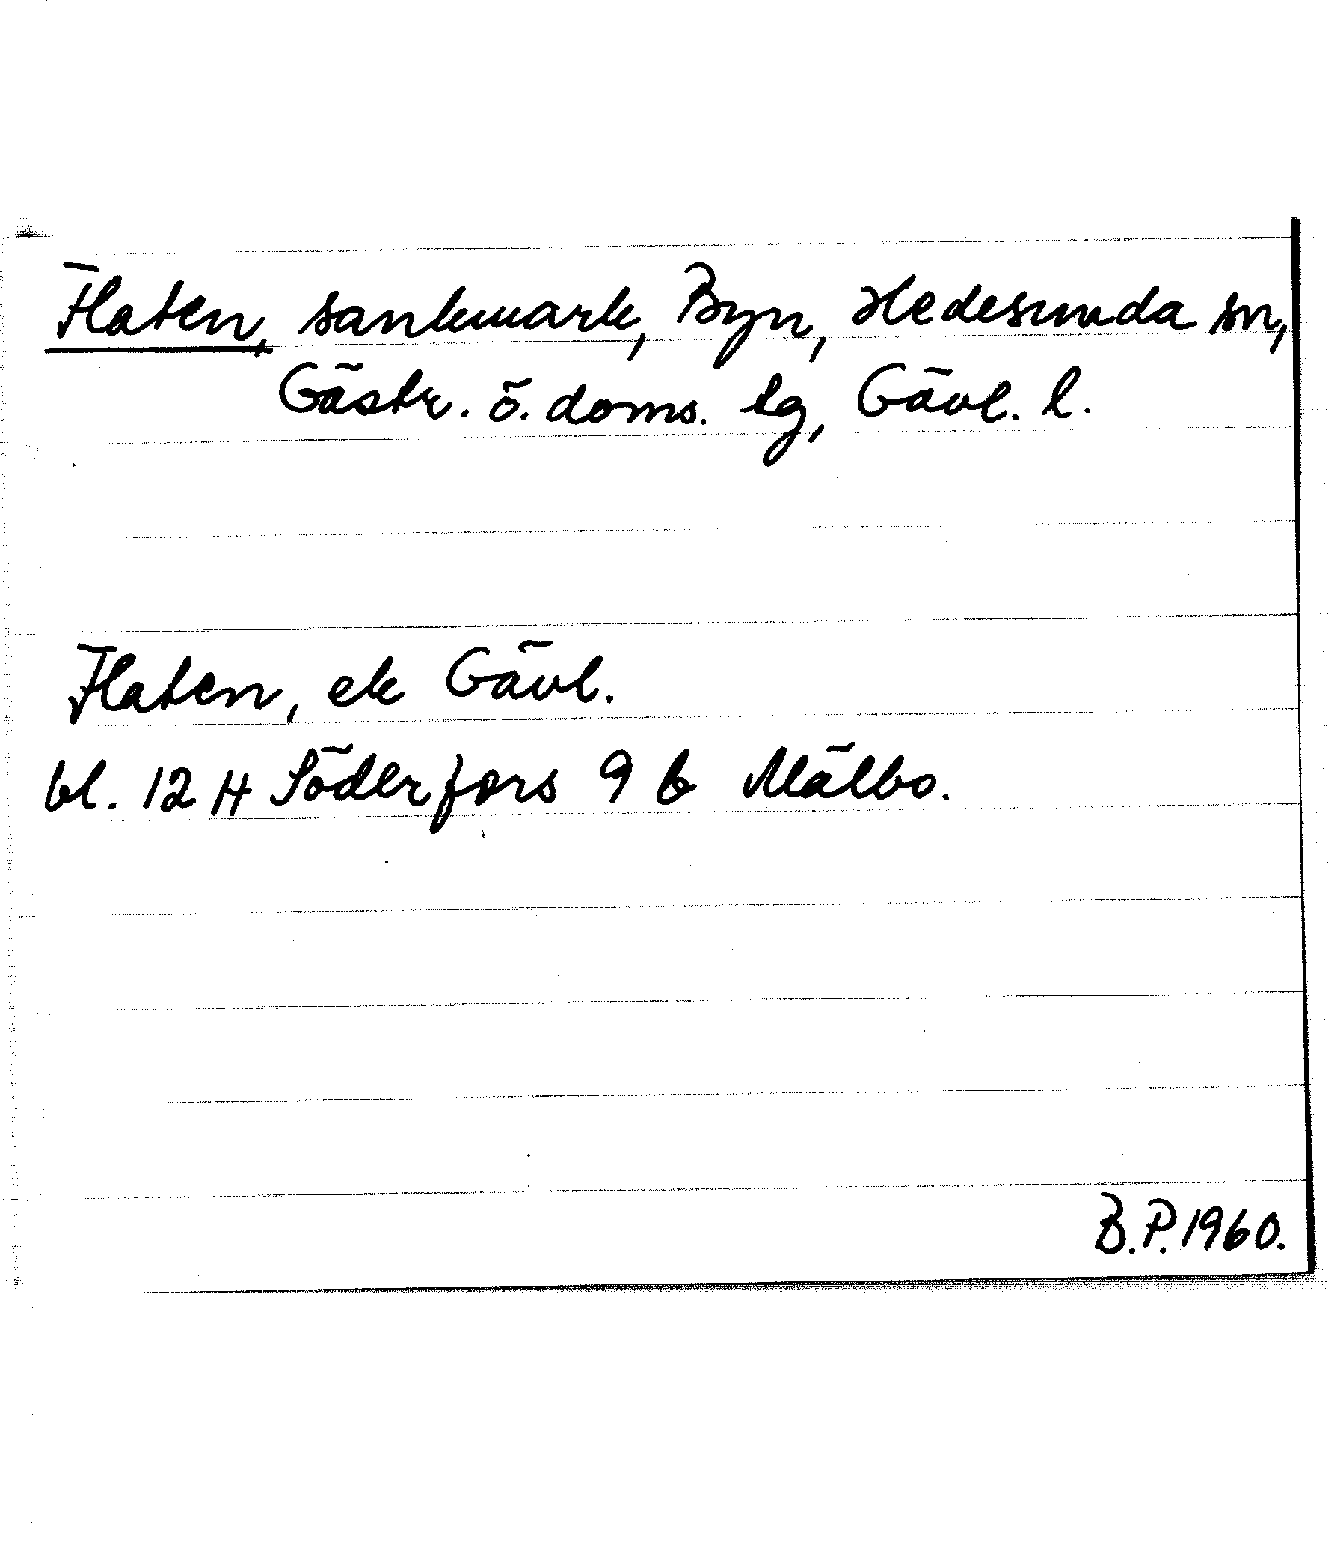 Flaten, sankmark, Byn, Hedesunda sn,
Gästr. ö. doms. lg, Gävl. l.
Flaten, ek Gävl.
bl. 12 H Söderfors 9 b Mälbo.
B.P. 1960.